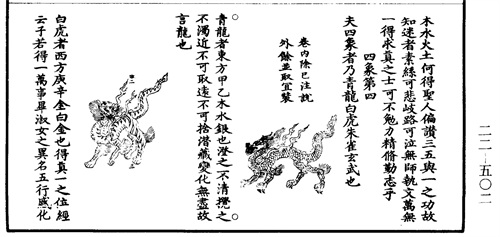 本水火土何得聖人偏讚三五與一之功故
知迷者素絲可悲岐路可泣無師執文萬無
一得求真之士可不勉力精脩勤志乎
四象第四
夫四象者乃青龍白虎朱雀玄武也
卷內除已注說
外餘並取冝裝
青龍者東方甲乙木水銀也澄之不清攪之
不濁近不可取遠不可捨潛藏變化無盡故
言龍也
白虎者西方庚辛金白金也得真一之位經
云子若得一萬事畢淑女之異名五行感化
二二—五〇二